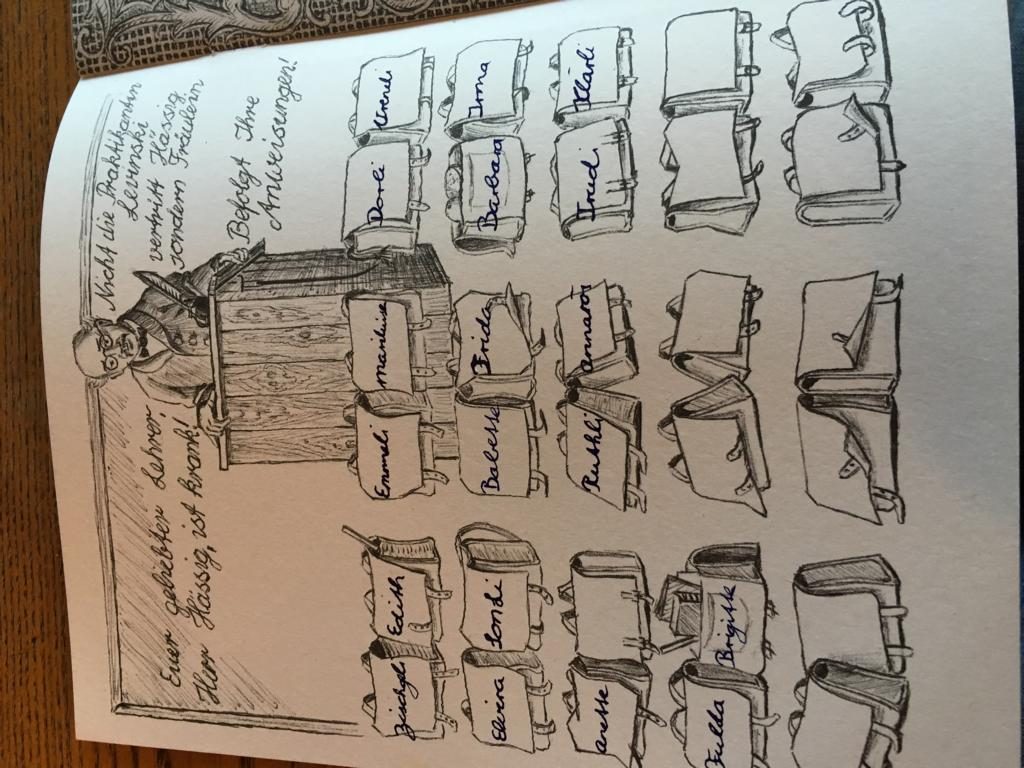 Euer geliebter Lehrer
Herr Hässig, ist krank!
Nicht die Praktikantin
Levinski
vertritt Hässig
sondern Fräulein
Befolgt Ihre
Anweisungen!
Edith Emmeli Marieluise Dorli Vreneli
Elvira Babette Frida Barbara Irma
Ruthli Annarös Trudi Klärli
Fulda Brigitte